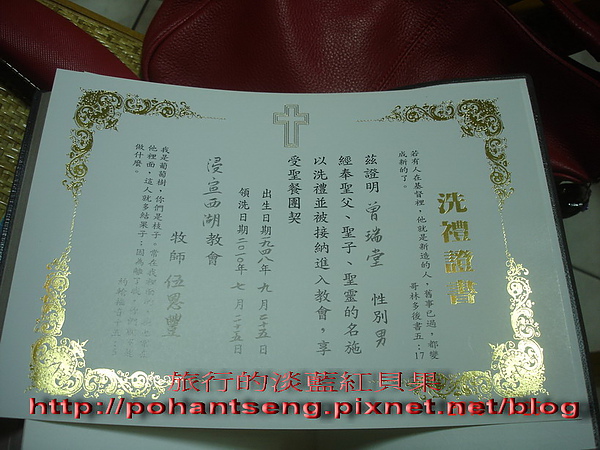 洗禮證書
若有人在基督裡，他就是新造的人，舊事已過，都變
成新的了。
哥林多後書五：17
茲證明 曾瑞堂 性別 男
經奉聖父、聖子、聖靈的名施
以洗禮並被接納進入教會，享
受聖餐團契
出生日期一九四八年 九月二十五日
領洗日期二〇一〇年 七月二十五日
浸宣西湖教會
牧師 伍恩豐
我是葡萄樹，你們是枝子。常在我
他裡面，這人就多結果子；因為離了我，你們就不能
做什麼。
約翰福音十五：5
旅行的淡藍紅貝果
http://pohantseng.pixnet.net/blog